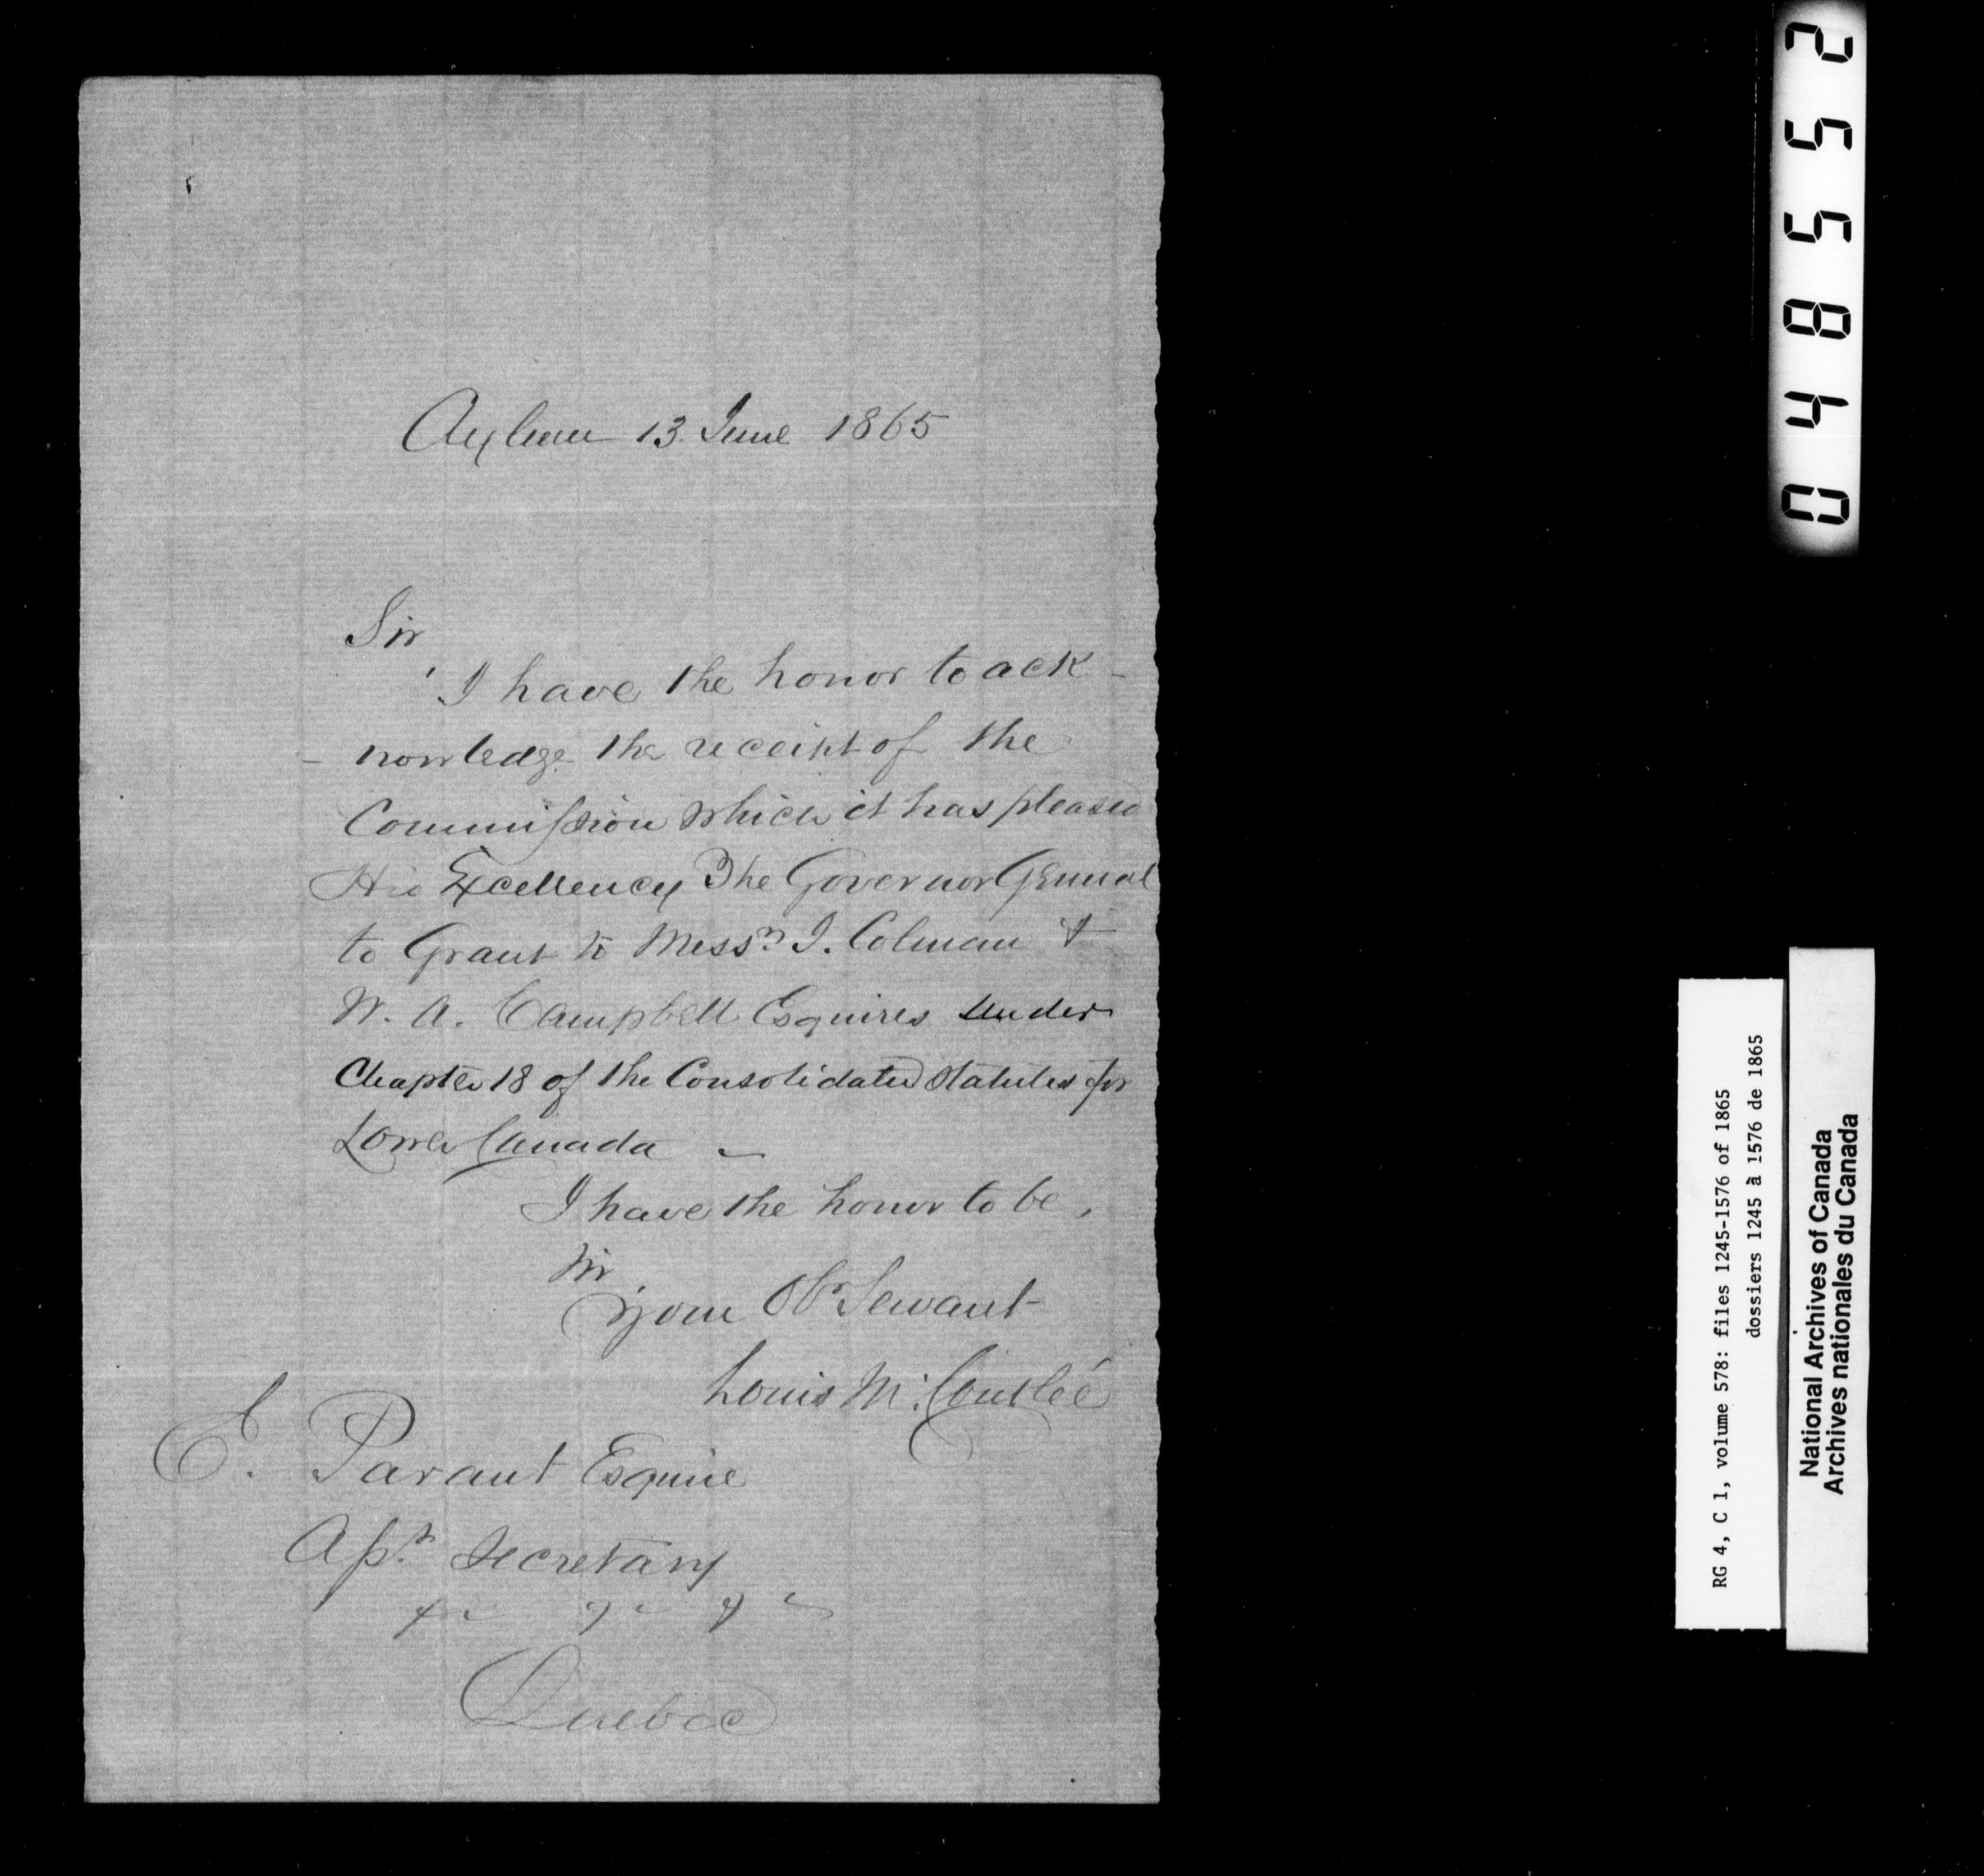 Aylmer 13 June 1865
Sir
I have the honor to ack-
-nowledge the receipt of the
Commission which it has pleased
His Excellency The Governor General
to Grant to Messrs I. Colman &
W. A. Campbell Esquires Under
Chapter 18 of the Consolidated Statutes for
Lower Canada -
I have the honor to be,
Sir
Your Ob Servant
Louis M. Coutlée
E. Parant Esquire
Asst Secretary
&c &c &c
Quebec
048552
RG 4, C 1, volume 578: files 1245-1576 of 1865
dossiers 1245 à 1576 de 1865
National Archives of Canada
Archives nationales du Canada